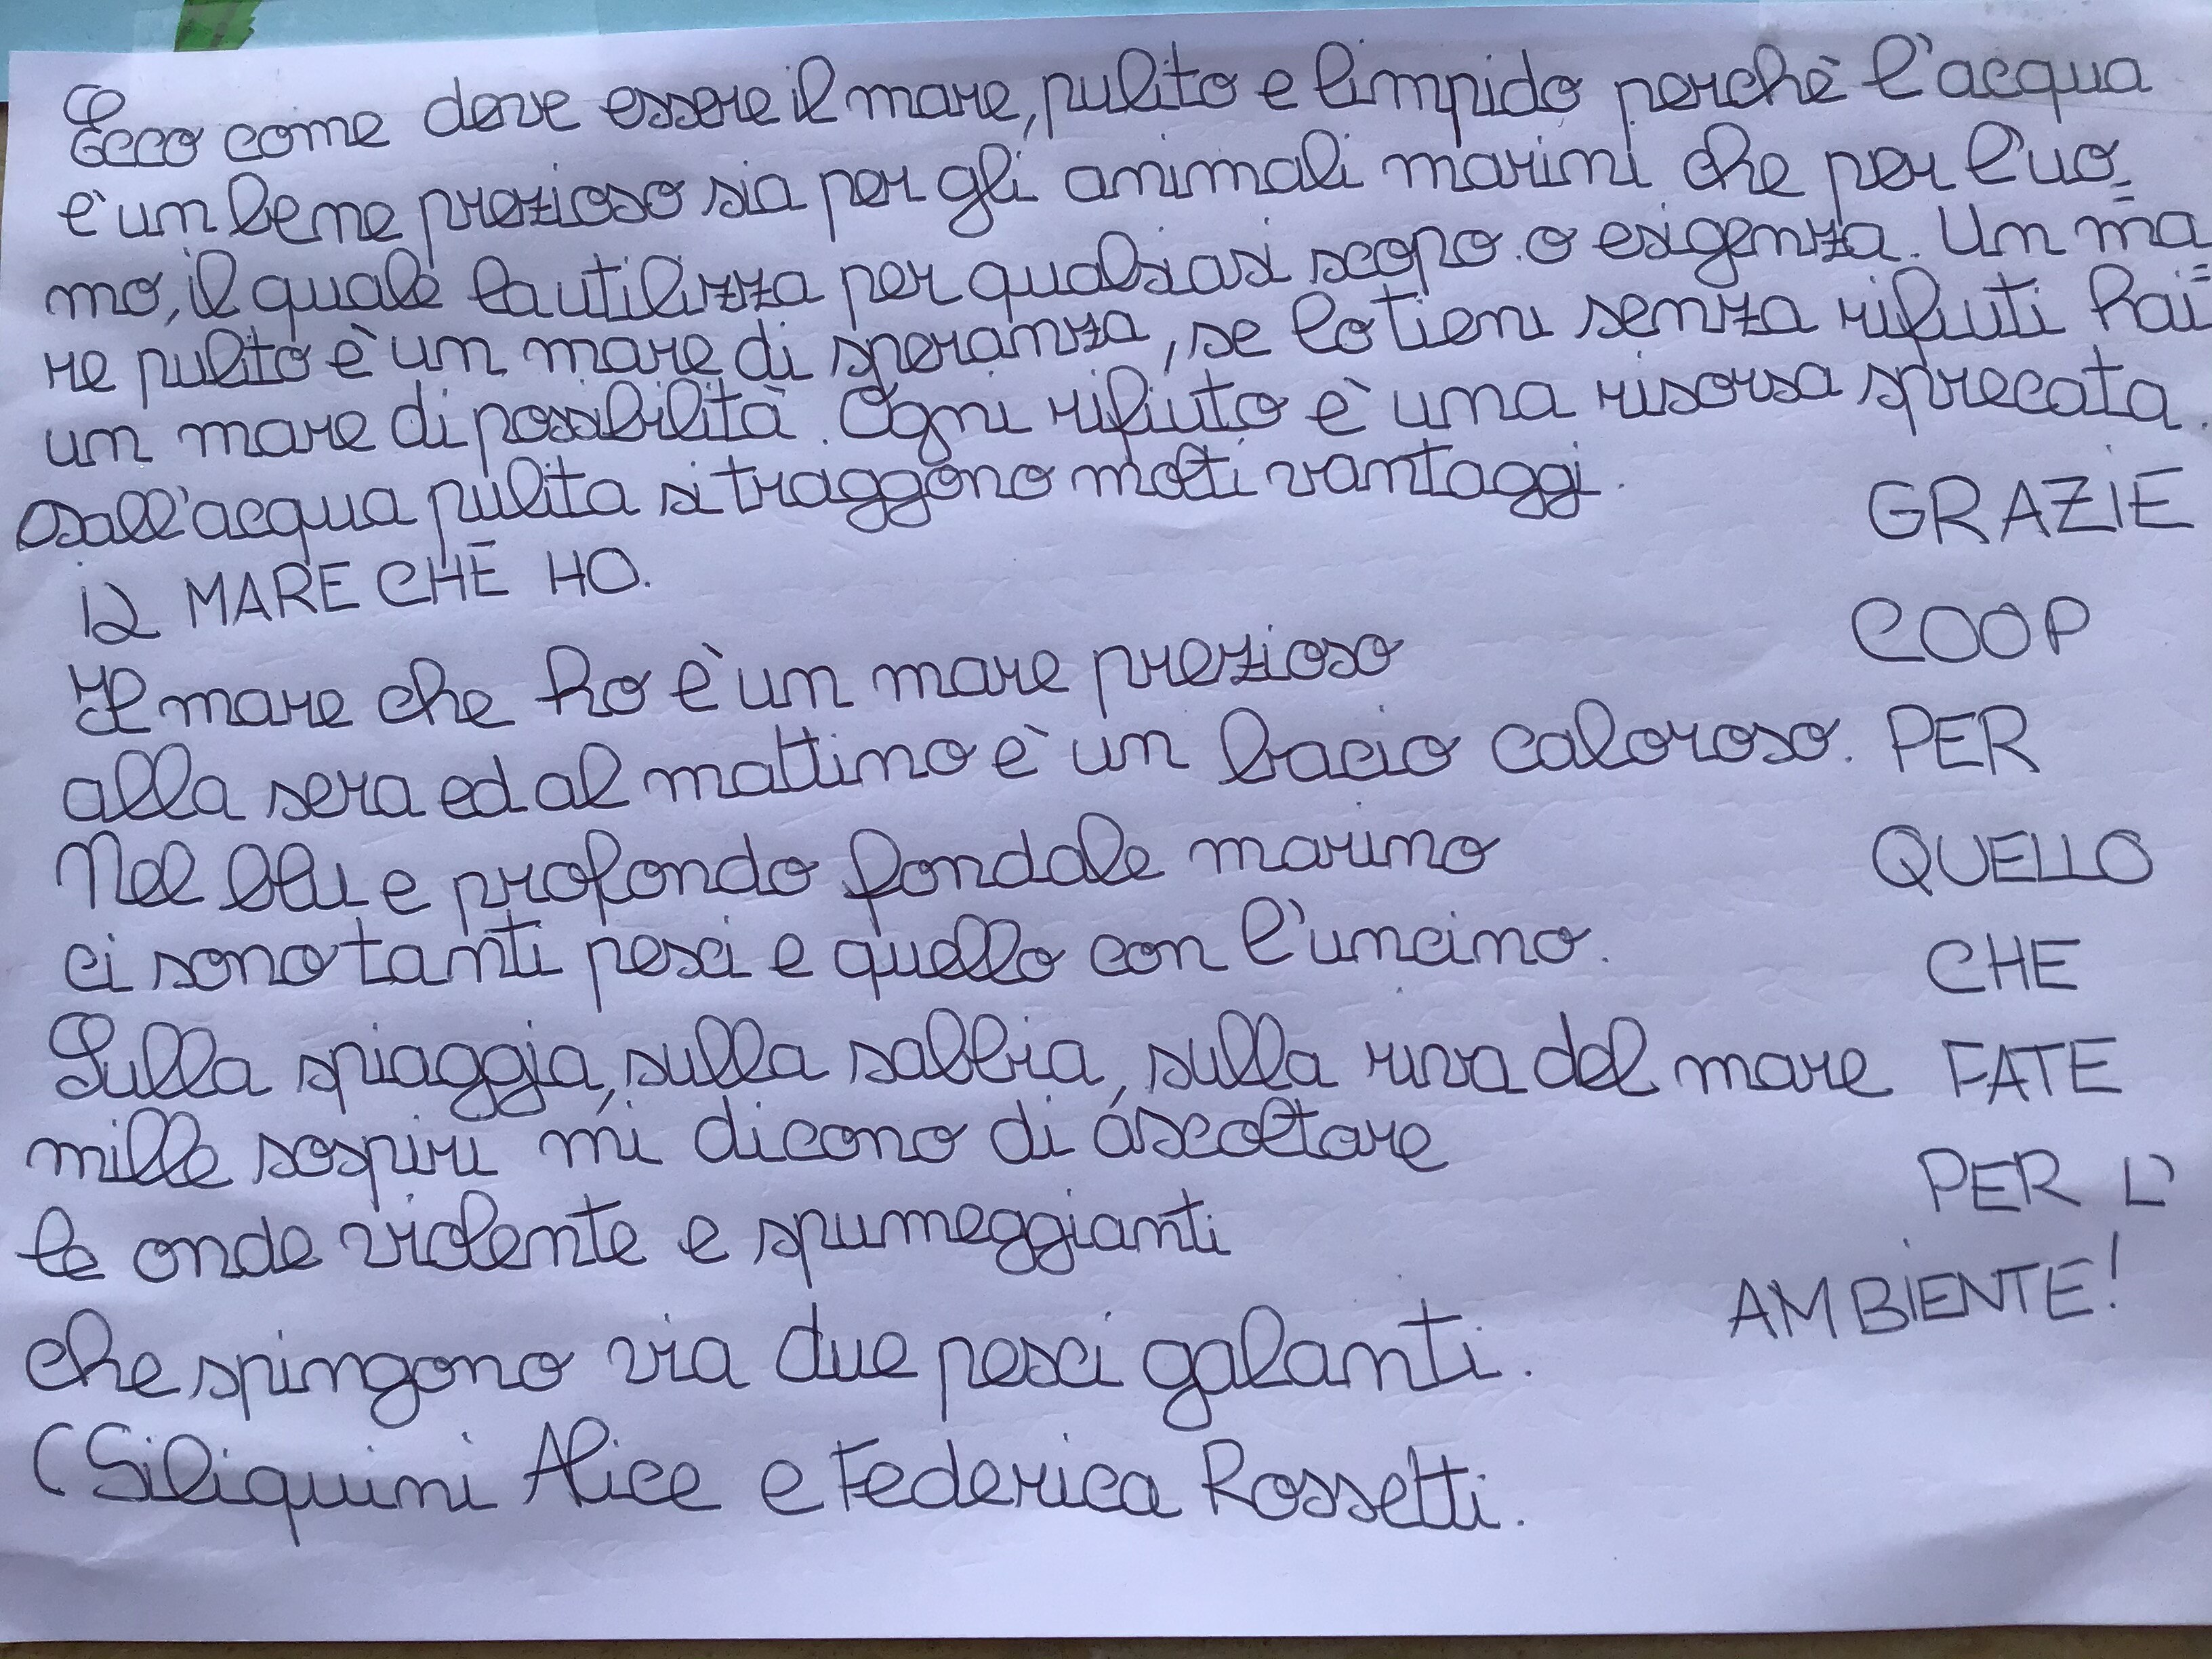 Ecco come deve essere il mare, pulito e limpido perchè l'acqua
è un bene prezioso sia per gli animali marini che per l'uo=
mo, il quale la utilizza per qualsiasi scopo o esigenza. Un ma=
re pulito è un mare di speranza, se lo tieni senza rifiuti hai
un mare di possibilità. Ogni rifiuto è una risorsa sprecata.
Dall'acqua pulita si traggono molti vantaggi.
IL MARE CHE HO.
Il mare che ho è un mare prezioso
alla sera ed al mattino è un bacio caloroso.
Nel blu e profondo fondale marino
ci sono tanti pesci e quello con l'uncino.
Sulla spiaggia, sulla sabbia, sulla riva del mare
mille sospiri mi dicono di ascoltare
le onde violente e spumeggianti
che spingono via due pesci galanti.
(Siliquini Alice e Federica Rossetti.
GRAZIE
COOP
PER
QUELLO
CHE
FATE
PER L'
AMBIENTE!